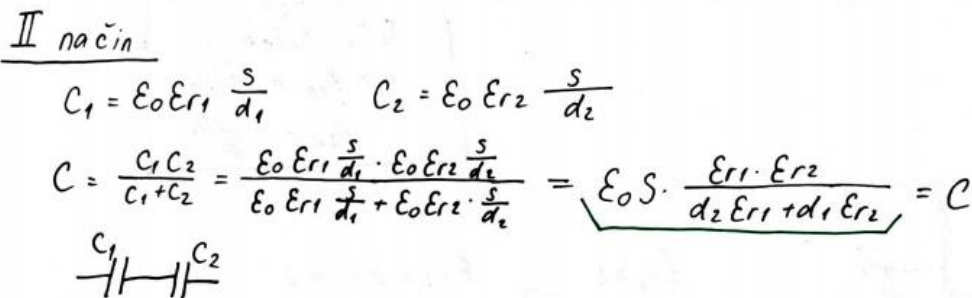 II način
C₁ = ε₀ εr₁ S/d₁ C₂ = ε₀ εr₂ S/d₂
C = C₁C₂/(C₁+C₂) = (ε₀ εr₁ S/d₁ · ε₀ εr₂ S/d₂)/(ε₀ εr₁ S/d₁ + ε₀ εr₂ · S/d₂) = ε₀ S · (εr₁ · εr₂)/(d₂ εr₁ + d₁ εr₂) = C
C₁ C₂